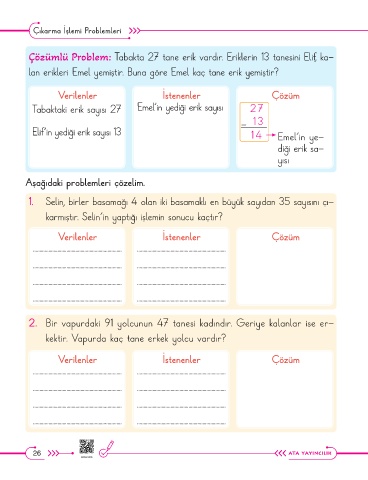 Çıkarma İşlemi Problemleri
Çözümlü Problem: Tabakta 27 tane erik vardır. Eriklerin 13 tanesini Elif, ka-
lan erikleri Emel yemiştir. Buna göre Emel kaç tane erik yemiştir?
Verilenler İstenenler Çözüm
Tabaktaki erik sayısı 27
Elif'in yediği erik sayısı 13
Emel'in yediği erik sayısı
27
- 13
14 → Emel'in ye-
diği erik sa-
yısı
Aşağıdaki problemleri çözelim.
1. Selin, birler basamağı 4 olan iki basamaklı en büyük sayıdan 35 sayısını çı-
karmıştır. Selin'in yaptığı işlemin sonucu kaçtır?
Verilenler İstenenler Çözüm
2. Bir vapurdaki 91 yolcunun 47 tanesi kadındır. Geriye kalanlar ise er-
kektir. Vapurda kaç tane erkek yolcu vardır?
Verilenler İstenenler Çözüm
26
ATA YAYINCILIK